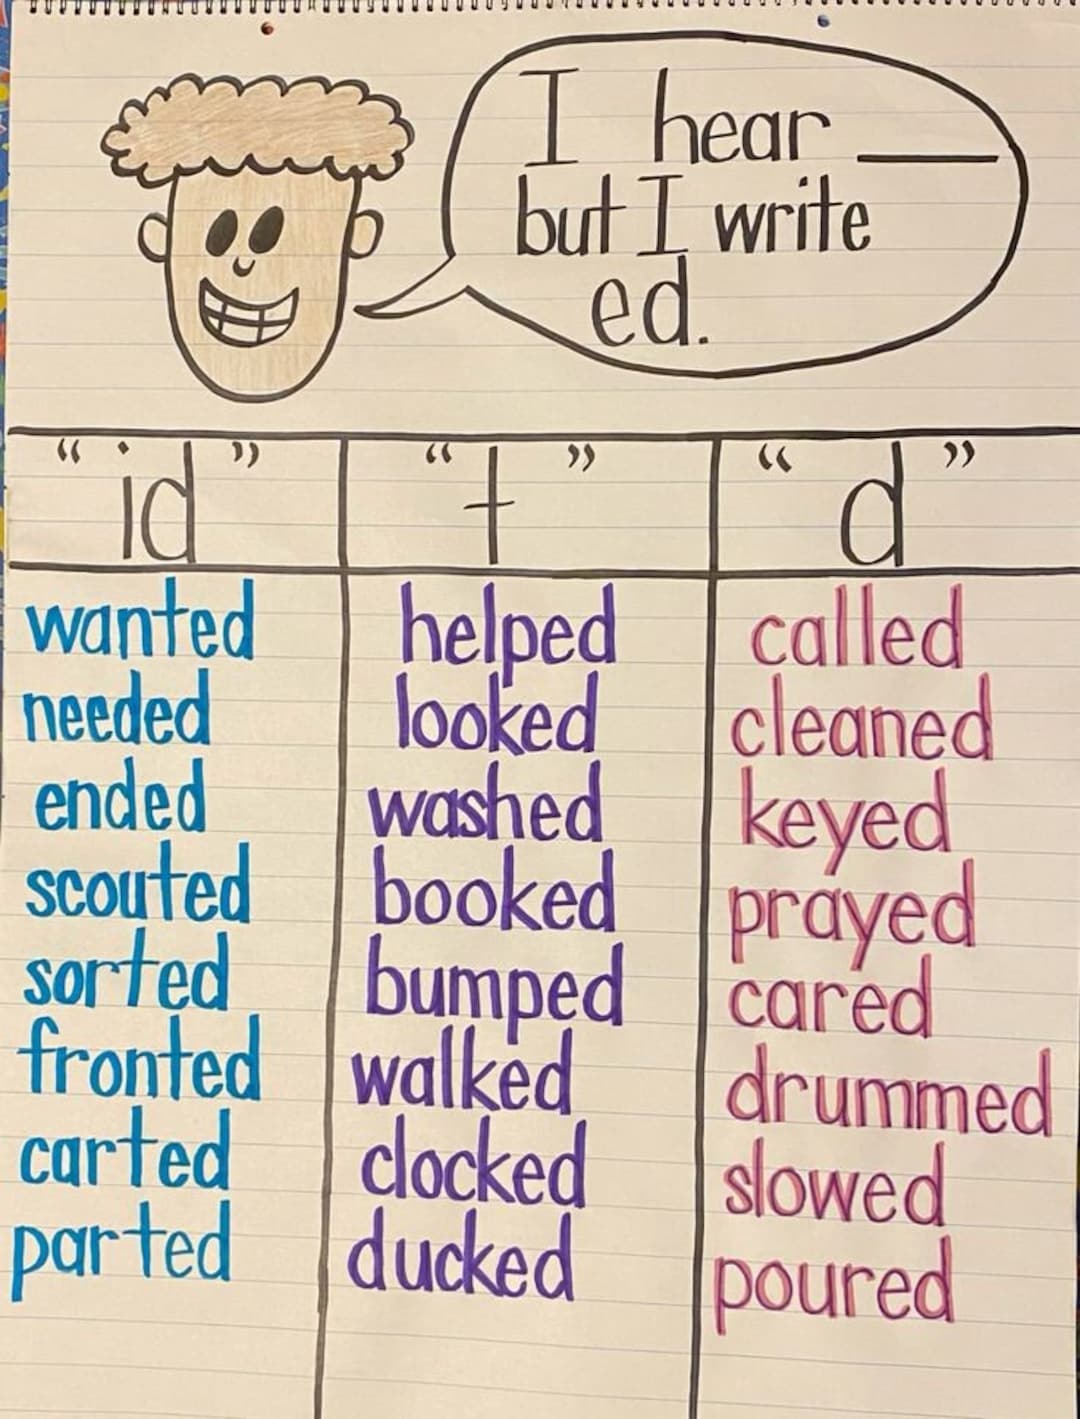 I hear ___
but I write
ed.
“id” “t” “d”
wanted helped called
needed looked cleaned
ended washed keyed
scouted booked prayed
sorted bumped cared
fronted walked drummed
carted clocked slowed
parted ducked poured